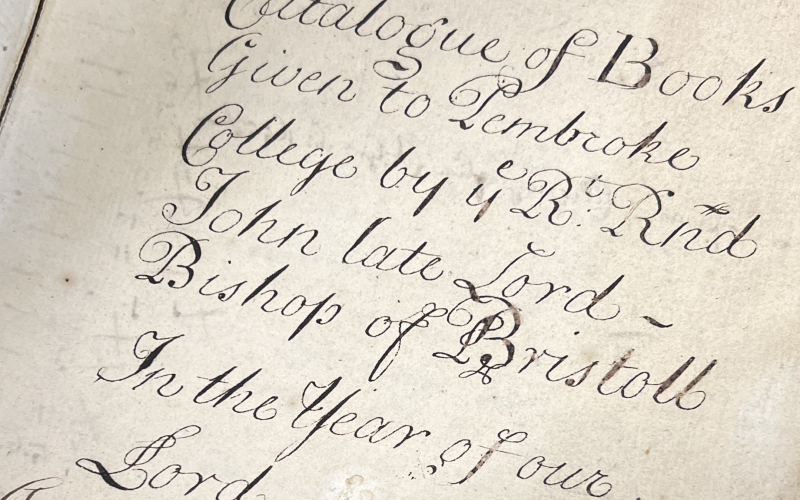 Catalogue of Books
Given to Pembroke
College by yᵉ Rᵗ. Rñd
John late Lord -
Bishop of Bristoll
In the Year of our
Lord